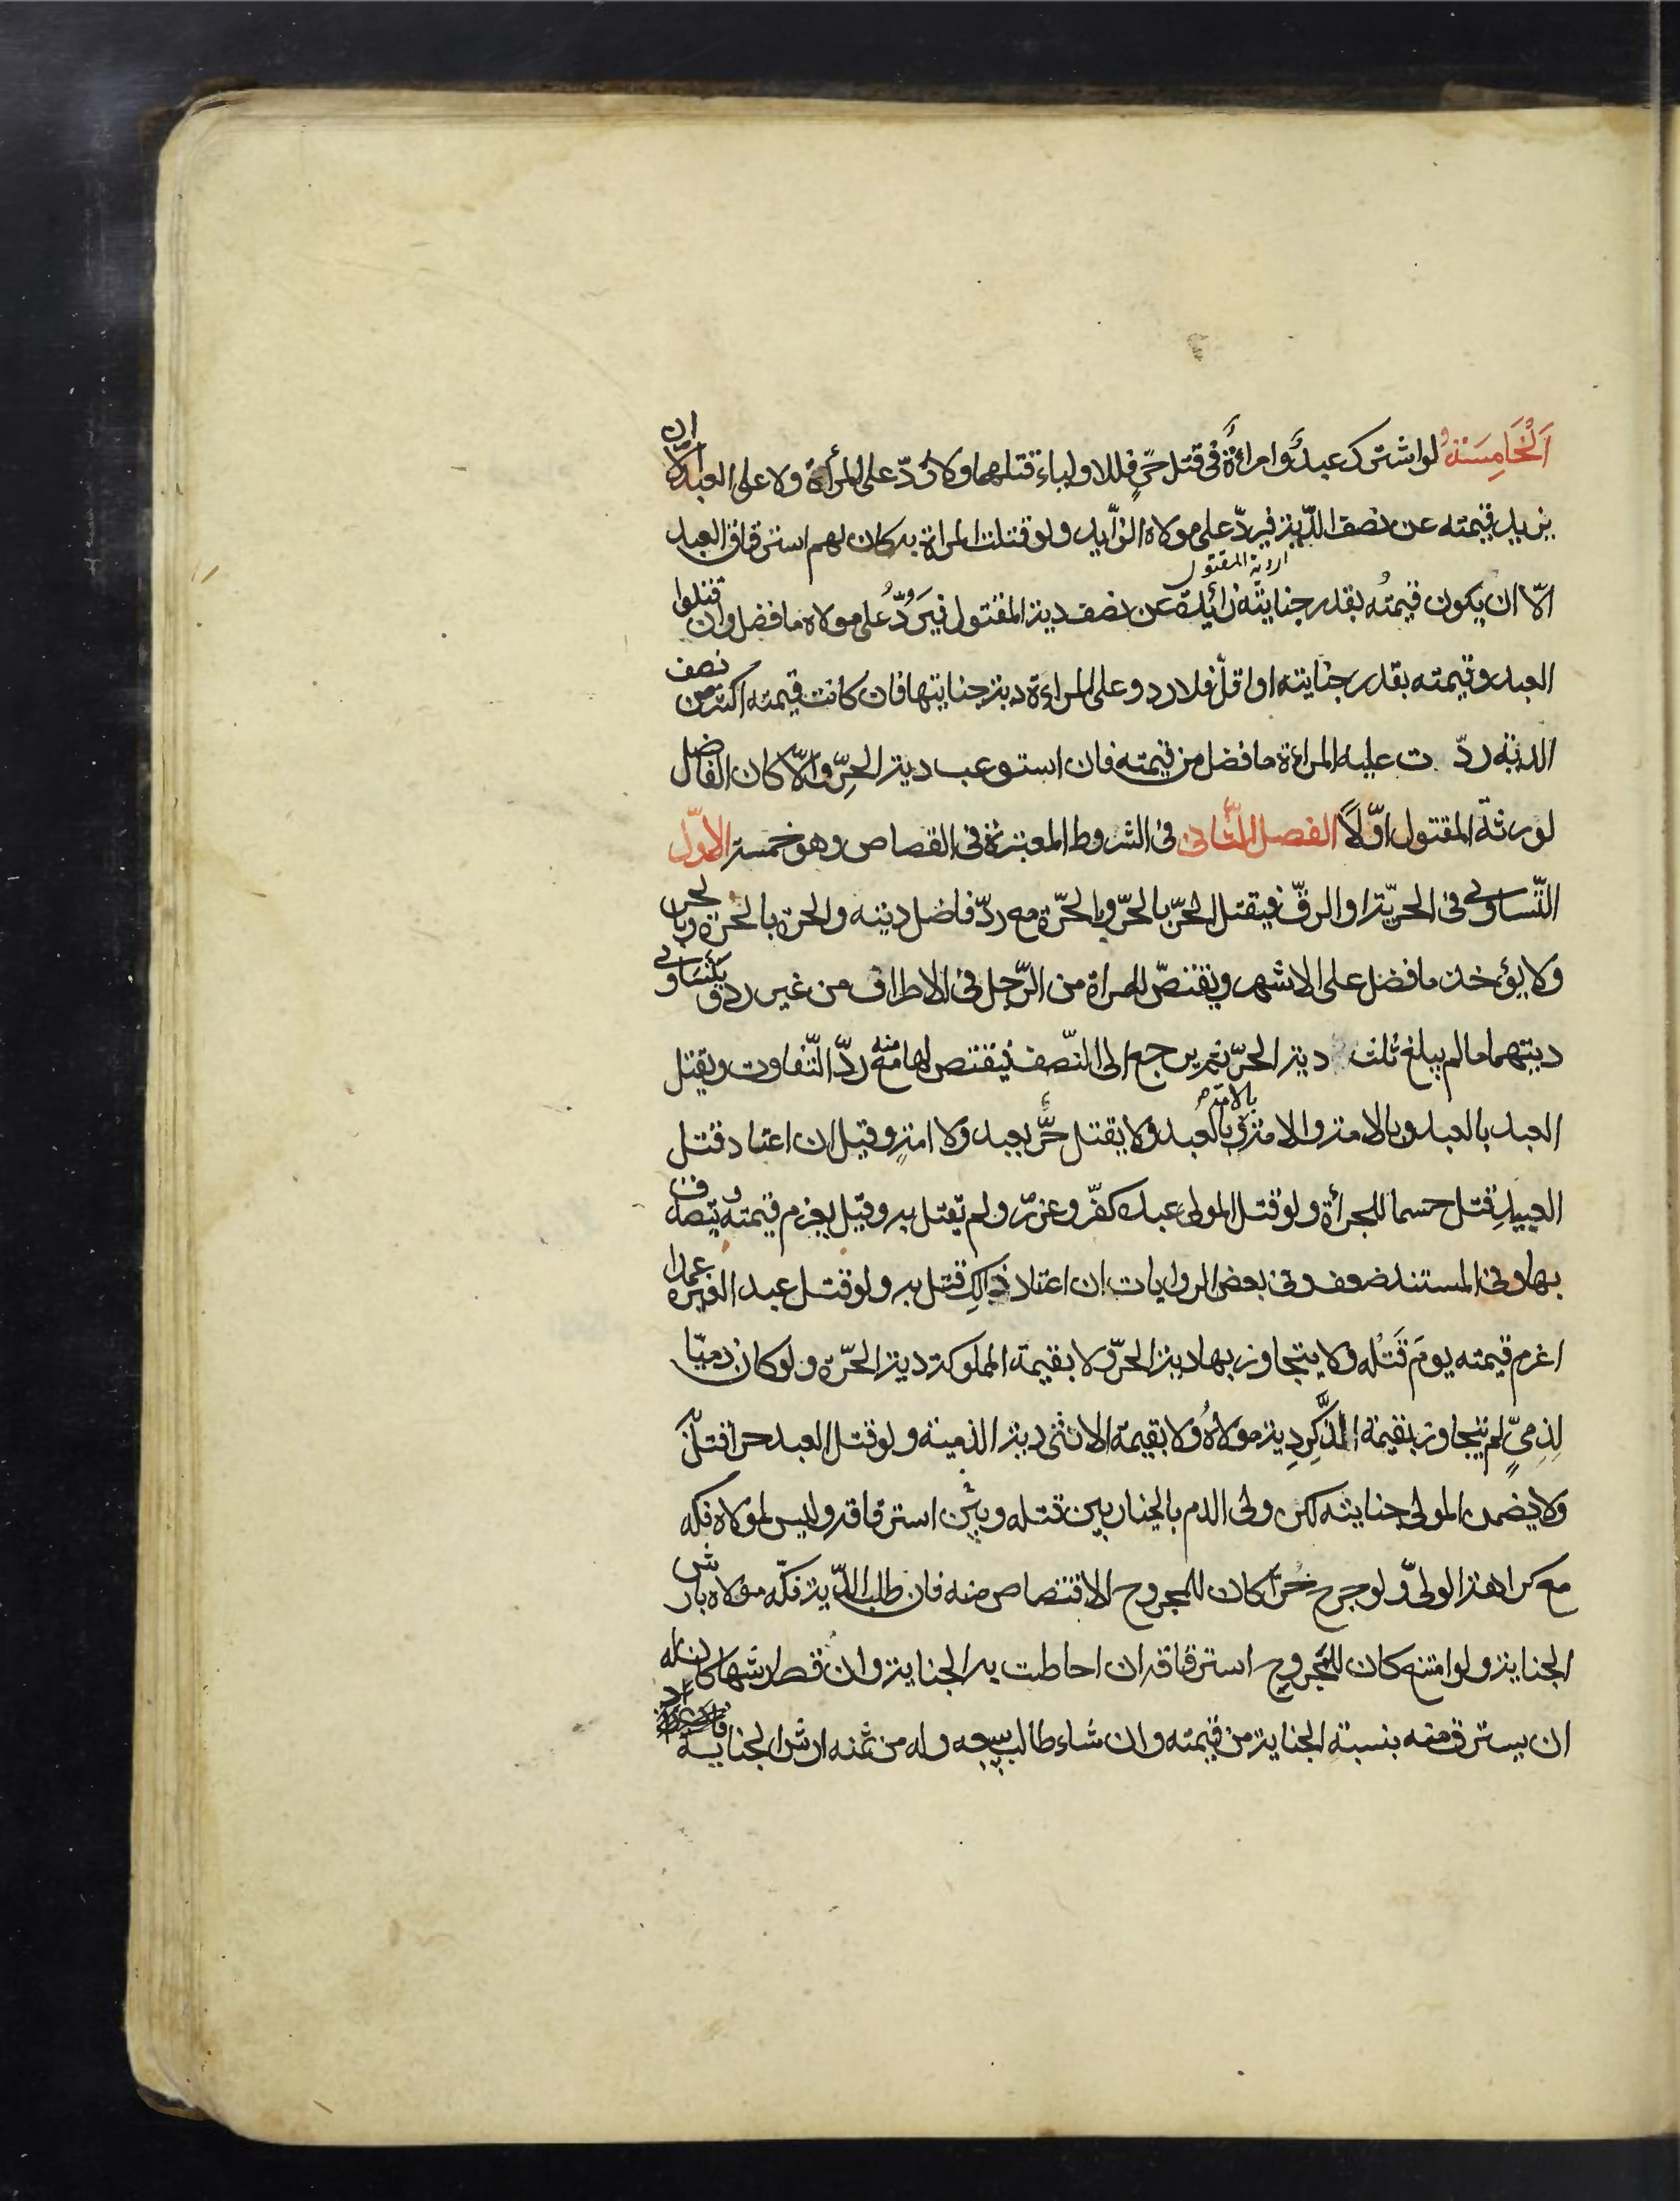 اَلْخَامِسَةُ لو اشترك عبدٌ وامراءةٌ فى قتل حرٍّ فللاولياء قتلهما ولا ردّ على المرأة ولا على العبد الّا ان
يزيد قيمته عن نصف الدّية فيردّ على مولاه الزّايد ولو قتلت المراة به كان لهم استرقاق العبد
او دية المقتول
الّا ان يكون قيمتُه بقدر جنايته زائدة عن نصف دية المقتول فيَردُّ على مولاه ما فضل وان قتلوا
العبد وقيمته بقدر جنايته او اقلّ فلا رد وعلى المراءة دية جنايتها فان كانت قيمته اكثر من نصف
الدية ردّت عليه المراءة ما فضل من قيمته فان استوعب دية الحرِّ والّا كان الفاضل
لورثة المقتول اوّلاً الفصل الثّانى فى الشروط المعتبرة فى القصاص وهو خمسة الاوّل
التّساوى فى الحريّة او الرقّ فيقتل الحرّ بالحرّ وبالحرّة مع ردّ فاضل ديته والحرة بالحرة وبالحر
ولا يؤخذ ما فضل على الاشهر ويقتصّ للمراة من الرّجل فى الاطراف من غير رد ويتساوى
ديتهما ما لم يبلغ ثلث دية الحرّ ثم يرجع الى النّصف فيقتص لها منه مع ردّ التّفاوت ويقتل
العبد بالعبد وبالامة والامة بالامة وبالعبد ولا يقتل حرٌّ بعبد ولا امةٍ وقيل ان اعتاد قتل
العبيدِ قتل حسما للجرأة ولو قتل المولى عبده كفّر وعزّر ولم يقتل به وقيل يغرم قيمته ويتصدق
بها وفى المستند ضعف وفى بعض الروايات ان اعتاد ذالك قتل به ولو قتل عبد الغيره عمدا
اغرم قيمته يومَ قَتْله ولا يتجاوز بها دية الحرّ ولا بقيمة المملوكة دية الحرّة ولو كان ذميّا
لِذِمىٍّ لم يتجاوز بقيمة الذَّكَرِ دِية مولاهُ ولا بقيمة الانثى دية الذمية ولو قتل العبد حرا قتل
ولا يضمن المولى جنايته لكن ولى الدم بالخيار بين قتله وبين استرقاقه وليس لمولاه فكه
مع كراهة الولىّ ولو جرح حُرّا كان للمجروح الاقتصاص منه فان طلب الدّية فكّه مولاه بارش
الجناية ولو امتنع كان للمجروح استرقاقه ان احاطت به الجناية وان قصر ارشها كان له
ان يسترق منه بنسبةِ الجناية من قيمته وان شاء طالب ببيعه وله من ثمنه ارش الجناية